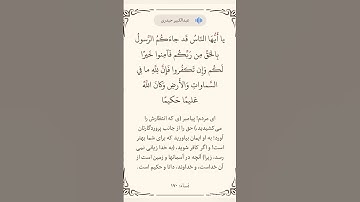 عبدالکبیر حیدری
يا أَيُّهَا النّاسُ قَد جاءَكُمُ الرَّسولُ
بِالحَقِّ مِن رَبِّكُم فَآمِنوا خَيرًا
لَكُم وَإِن تَكفُروا فَإِنَّ لِلَّهِ ما فِي
السَّماواتِ وَالأَرضِ وَكانَ اللَّهُ
عَليمًا حَكيمًا
ای مردم! پیامبر (ی که انتظارش را
می کشیدید) حق را از جانب پروردگارتان
آورد؛ به او ایمان بیاورید که برای شما بهتر
است! و اگر کافر شوید، (به خدا زیانی نمی
رسد، زیرا) آنچه در آسمانها و زمین است از
آن خداست، و خداوند، دانا و حکیم است.
نساء: ۱۷۰